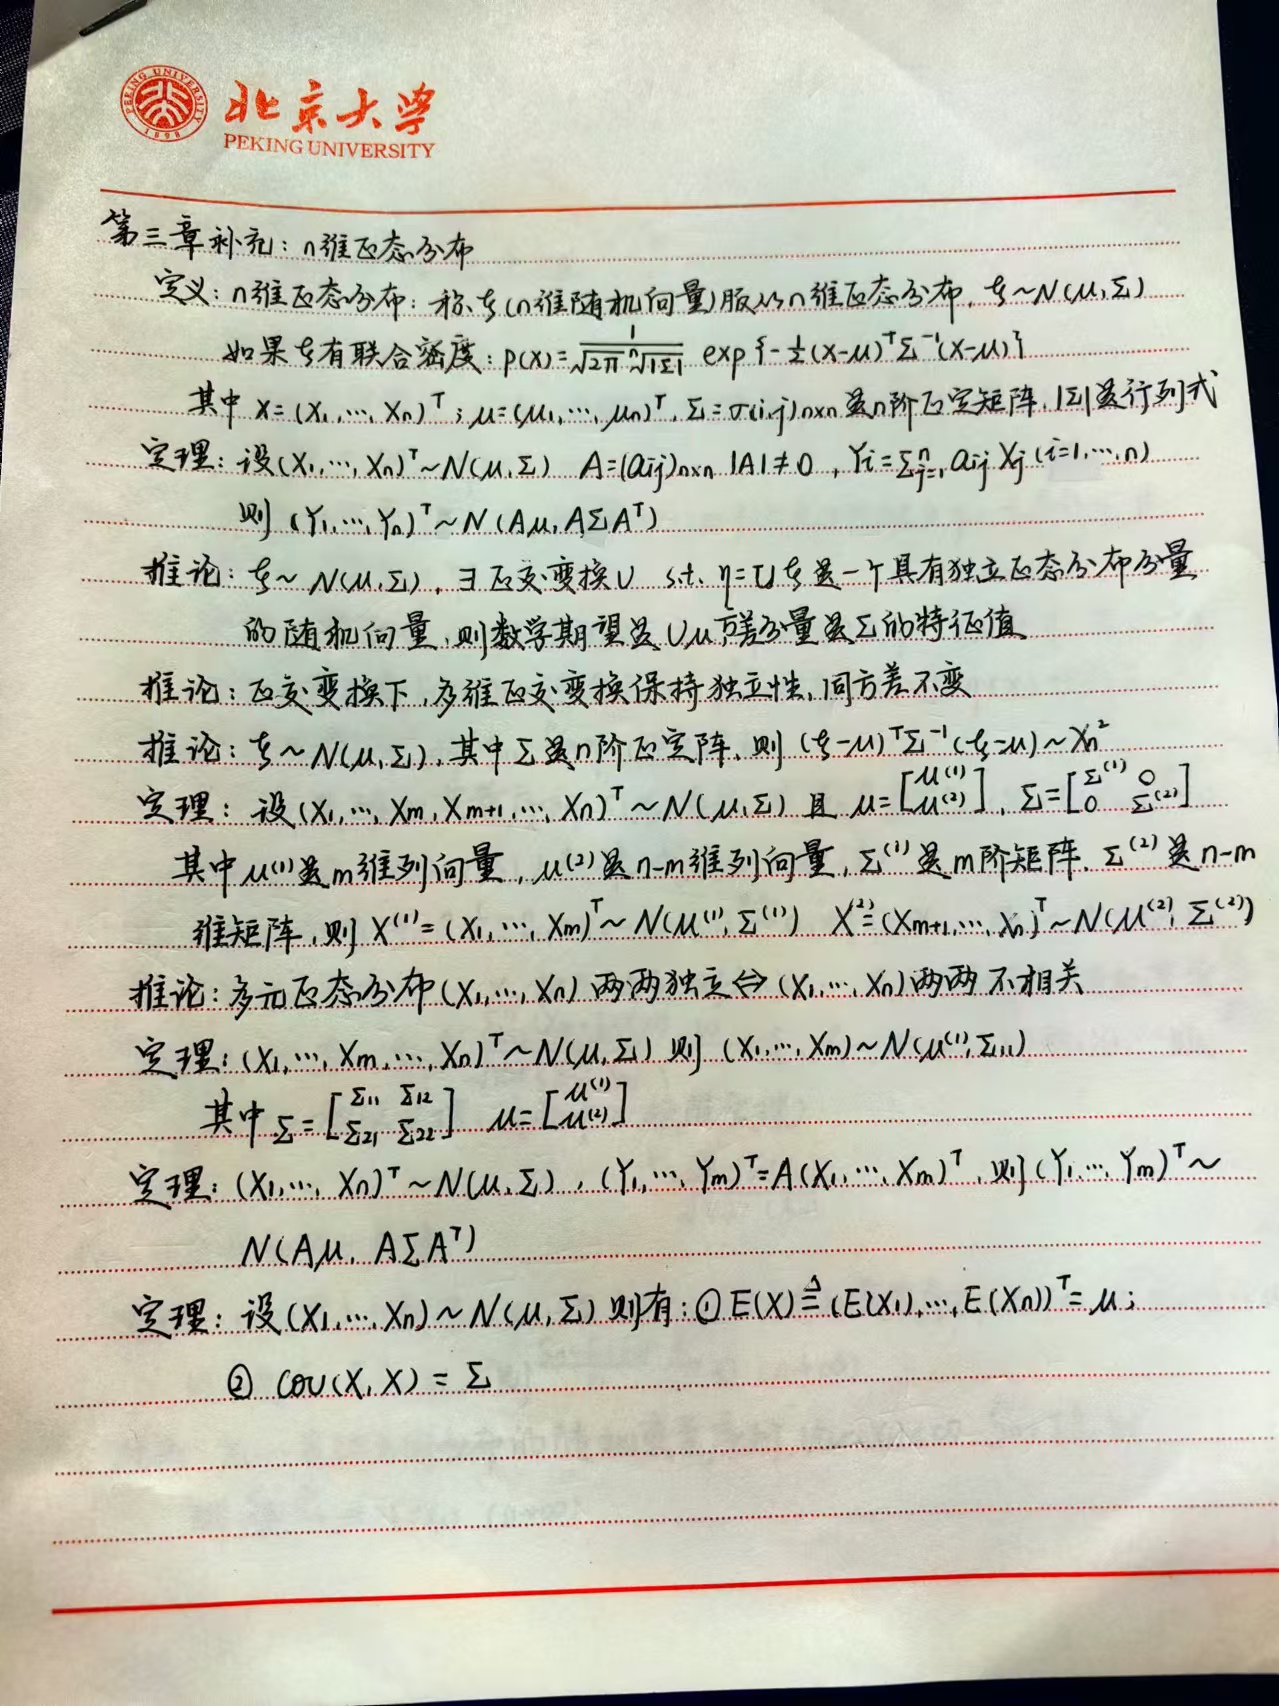 PEKING UNIVERSITY 1898
北京大学
PEKING UNIVERSITY
第三章补充：n维正态分布
定义：n维正态分布：称ξ(n维随机向量)服从n维正态分布，ξ~N(μ,Σ)
如果ξ有联合密度：p(x)=1/(√2π^n √|Σ|) exp{-½(x-μ)ᵀΣ⁻¹(x-μ)}
其中 x=(x₁,…,xₙ)ᵀ；μ=(μ₁,…,μₙ)ᵀ，Σ=σ(i,j)n×n 是n阶正定矩阵，|Σ|是行列式
定理：设(X₁,…,Xₙ)ᵀ~N(μ,Σ) A=(aij)n×n |A|≠0，Yi=Σⁿj=1 aij Xj (i=1,…,n)
则 (Y₁,…,Yₙ)ᵀ~N(Aμ,AΣAᵀ)
推论：ξ~N(μ,Σ)，∃正交变换U s.t. η=Uξ是一个具有独立正态分布分量
的随机向量，则数学期望是Uμ，方差分量是Σ的特征值
推论：正交变换下，多维正交变换保持独立性，同方差不变
推论：ξ~N(μ,Σ)，其中Σ是n阶正定阵，则 (ξ-μ)ᵀΣ⁻¹(ξ-μ)~Xₙ²
定理：设(X₁,…,Xm,Xm+1,…,Xₙ)ᵀ~N(μ,Σ) 且 μ=[μ⁽¹⁾ μ⁽²⁾]，Σ=[Σ⁽¹⁾ 0 0 Σ⁽²⁾]
其中μ⁽¹⁾是m维列向量，μ⁽²⁾是n-m维列向量，Σ⁽¹⁾是m阶矩阵，Σ⁽²⁾是n-m
维矩阵，则 X⁽¹⁾=(X₁,…,Xm)ᵀ~N(μ⁽¹⁾,Σ⁽¹⁾) X⁽²⁾=(Xm+1,…,Xₙ)ᵀ~N(μ⁽²⁾,Σ⁽²⁾)
推论：多元正态分布(X₁,…,Xₙ)两两独立⇔(X₁,…,Xₙ)两两不相关
定理：(X₁,…,Xm,…,Xₙ)ᵀ~N(μ,Σ) 则 (X₁,…,Xm)~N(μ⁽¹⁾,Σ₁₁)
其中Σ=[Σ₁₁ Σ₁₂ Σ₂₁ Σ₂₂] μ=[μ⁽¹⁾ μ⁽²⁾]
定理：(X₁,…,Xₙ)ᵀ~N(μ,Σ)，(Y₁,…,Ym)ᵀ=A(X₁,…,Xm)ᵀ，则(Y₁,…,Ym)ᵀ~
N(Aμ, AΣAᵀ)
定理：设(X₁,…,Xₙ)~N(μ,Σ) 则有：①E(X)≜(E(X₁),…,E(Xₙ))ᵀ=μ；
② cov(X,X)=Σ